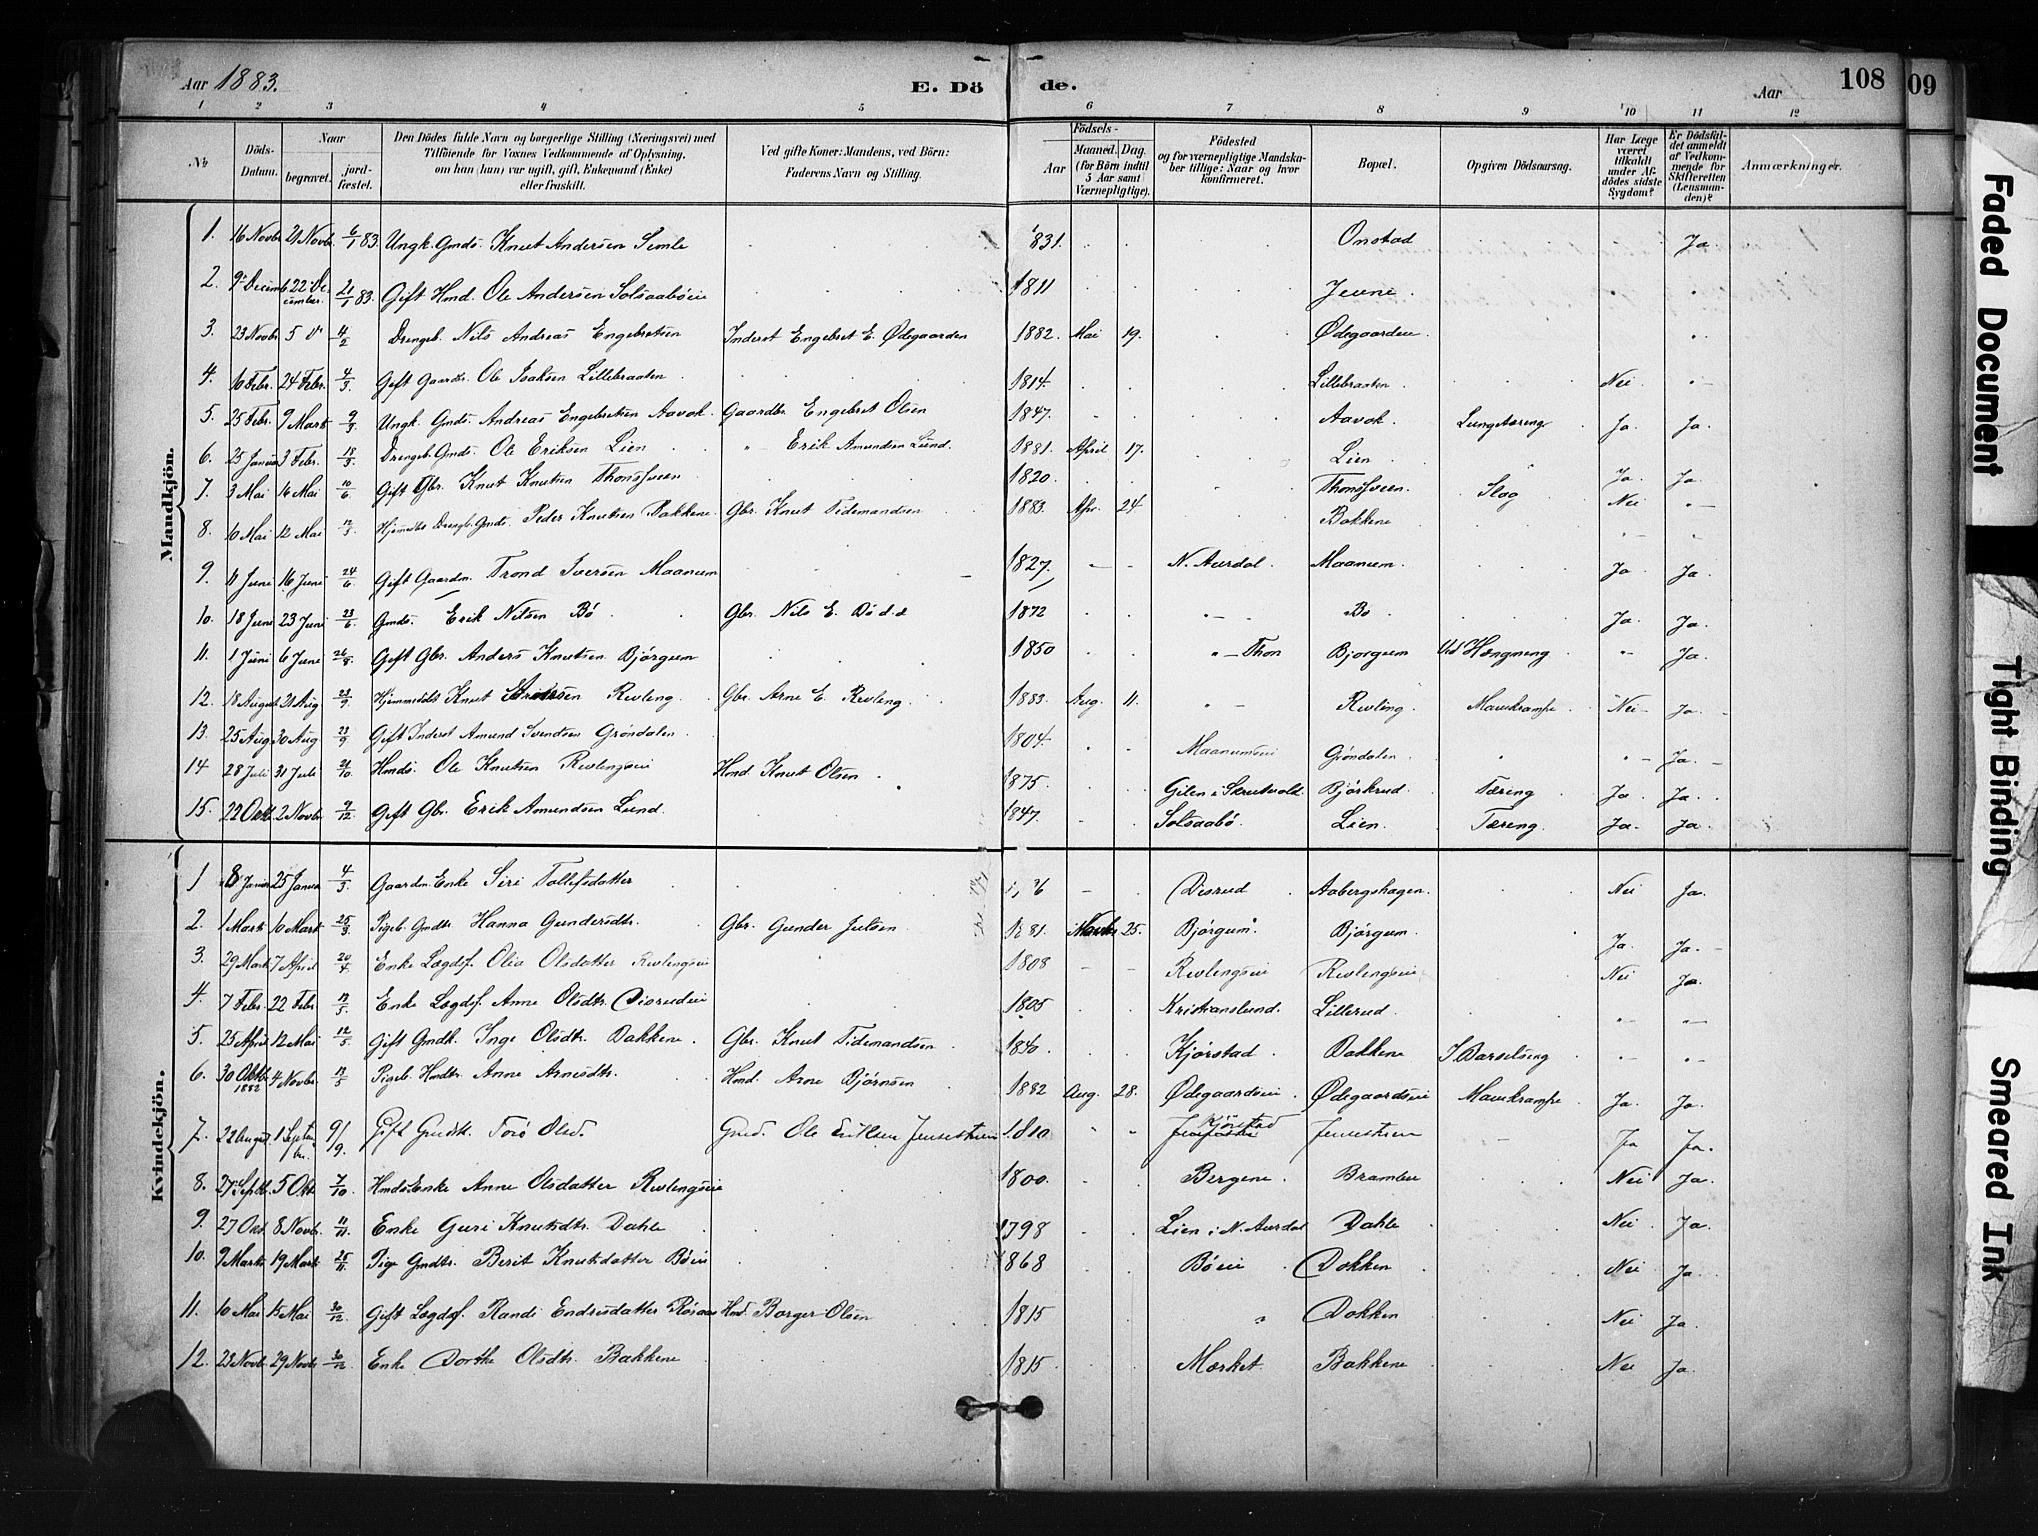 Aar 1883. E. Dö de. Aar 108 09
1 2 3 4 5 6 7 8 9 10 11 12
No
Döds-Datum.
Naar
begravet.
jord-fæstet.
Den Dödes fulde Navn og borgerlige Stilling (Næringsvei) med
Tilföiende for Voxnes Vedkommende af Oplysning,
om han (hun) var ugift, gift, Enkemand (Enke)
eller fraskilt.
Ved gifte Koner: Mandens, ved Börn:
Faderens Navn og Stilling.
Födsels-
Aar
Maaned. Dag.
(for Börn indtil
5 Aar samt
Værnepligtige).
Födested
og for værnepligtige Mandska-
ber tillige: Naar og hvor
konfirmeret.
Bopæl.
Opgiven Dödsaarsag.
Har Læge
været
tilkaldt
under Af-
dödes sidste
Sygdom?
Er Dödsfal-
det anmeldt
af Vedkom-
mende for
Skifteretten
(Lensman-
den)?
Anmærkninger.
Mandkjön.
1. 16 Novbr. 21 Novbr. 6/1 83. Ungk. Gmds. Knut Andersen Semle 831. Onstad Ja.
2. 9 Decemb 22 De-cember. 21/1 83. Gift Hmd. Ole Andersen Solsaabøeie 1811 Jeune
3. 23 Novbr 5 4/2 Drengeb. Nils Andreas Engebretsen Inderst Engebret E. Ødegaarden 1882. Mai 19. Ødegaarden.
4. 10 Febr. 24 Febr. 4/3 Gift Gaardbr. Ole Isaksen Lillebraaten 1814. Lillebraaten Nei "
5. 25 Febr. 9 Mart 9/3 Ungk. Gmds. Andreas Engebretsen Aavok. Gaardbr. Engebret Olsen 1847. Aavok Lungetæring Ja. Ja.
6. 25 Januar 3 Febr. 18/3 Drengeb. Gmds. Ole Eriksen Lien " Erik Amundsen Lund. 1881. April 17. Lien Ja. Ja.
7. 3 Mai 16 Mai 10/6 Gift Gbr. Knut Knutsen Thonsveen 1820. Thonsveen. Slag Nei "
8. 10 Mai 12 Mai 12/5 Hjemmedbt Drengb. Gmds. Peder Knutsen Bakkene Gbr. Knut Tidemandsen 1883. Apr. 24 Bakkene " "
9. 11 Juni 16 Juni 24/6 Gift Gaardm. Trond Iversen Maanum 1827. N. Aurdal. Maanum. Ja. Ja.
10. 18 Juni 23 Juni 23/6 Gmds. Erik Nilsen Bø Gbr. Nils E. Bø d.e 1872 " Bø Ja. Ja.
11. 1 Juni 6 Juni 26/8 Gift Gbr. Anders Knutsen Bjørgum 1850 " Thon Bjorgum Ved Hængning " Ja.
12. 18 August 21 Aug 23/9 Hjemmedbt Knut Arnesen Revling. Gbr. Arne E. Revling. 1883. Aug. 11. " Revling. Mavekrampe Nei Ja.
13. 25 Aug 30 Aug 23/9 Gift Inderst Amund Svendsen Grøndalen 1804. Maanumseie Grøndalen " Ja.
14 28 Juli 31 Juli 21/10 Hmds. Ole Knutsen Revlengseie Hmd Knut Olsen 1875 Gilen i Skrutvold. Bjørkrud. Tæring Ja. Ja.
15. 22 Oktb 2 Novbr 9/12 Gift Gbr. Erik Amundsen Lund. 1847. Solsaabø. Lien. Tæring. Ja. Ja.
Kvindekjön.
1 8 Januar 25 Januar 4/3 Gaardm. Enke Siri Tollefsdatter Disrud Aabergshagen. Nei Ja.
2. 1 Mart 10 Mart 25/3 Pigeb. Gmdtr. Hanna Gundersdtr. Gbr. Gunder Julsen 1881. Novbr 25. Bjørgum. Bjørgum. Ja. Ja.
3. 29 Mart 7 April 20/4 Enke Lægdsf. Olia Olsdatter Revlengseie 1808 Revlengseie Revlengseie Nei Ja.
4. 7 Febr. 22 Febr 13/5 Enke Lægdsf. Anne Olsdtr. Disrudeie 1805 Kristianslund. Lillerud. " "
5. 25 April 12 Mai 12/5 Gift Gmdk. Inge Olsdtr. Bakkene. Gbr. Knut Tidemandsen 1840. Kjørstad Bakkene I Barselseng " "
6. 30 Oktb 1882 4 Novbr. 13/5 Pigeb. Hmdtr. Anne Arnesdtr. Hmd. Arne Bjørnsen 1882 Aug. 28. Ødegaardseie. Ødegaardseie Mavekrampe Ja. Ja.
7. 22 Augs. 1 Septem br. 9/9. Gift Gmdk. Torø Olsd. Gmd. Ole Eriksen Jensestuen 1810 Kjørstad Jensestuen Ja Ja.
8. 27 Septb. 5 Okt 7/10 Hmds Enke Anne Olsdatter Revlengseie 1800. Bergene. Bramber Nei Ja.
9. 27 Okt. 8 Novb. 11/11 Enke Guri Knutsdtr. Dahle 1798 Lien i N. Aurdal Dahle Nei Ja.
10. 9 Marts 19 Mart 25/11. Pige Gmdtr. Berit Knutsdatter Bøeie 1868 Bøeie Dokken Nei Ja.
11. 10 Mai 15 Mai 30/12. Gift Lægdsf. Randi Endresdatter Røsaas Hmd. Borger Olsen 1815 " Dokken Nei Ja.
12. 23 Novb. 29 Novb 30/12 Enke Dorthe Olsdtr. Bakkene 1815 Mærket Bakkene Nei Ja.
Faded Document
Tight Binding
Smeared Ink